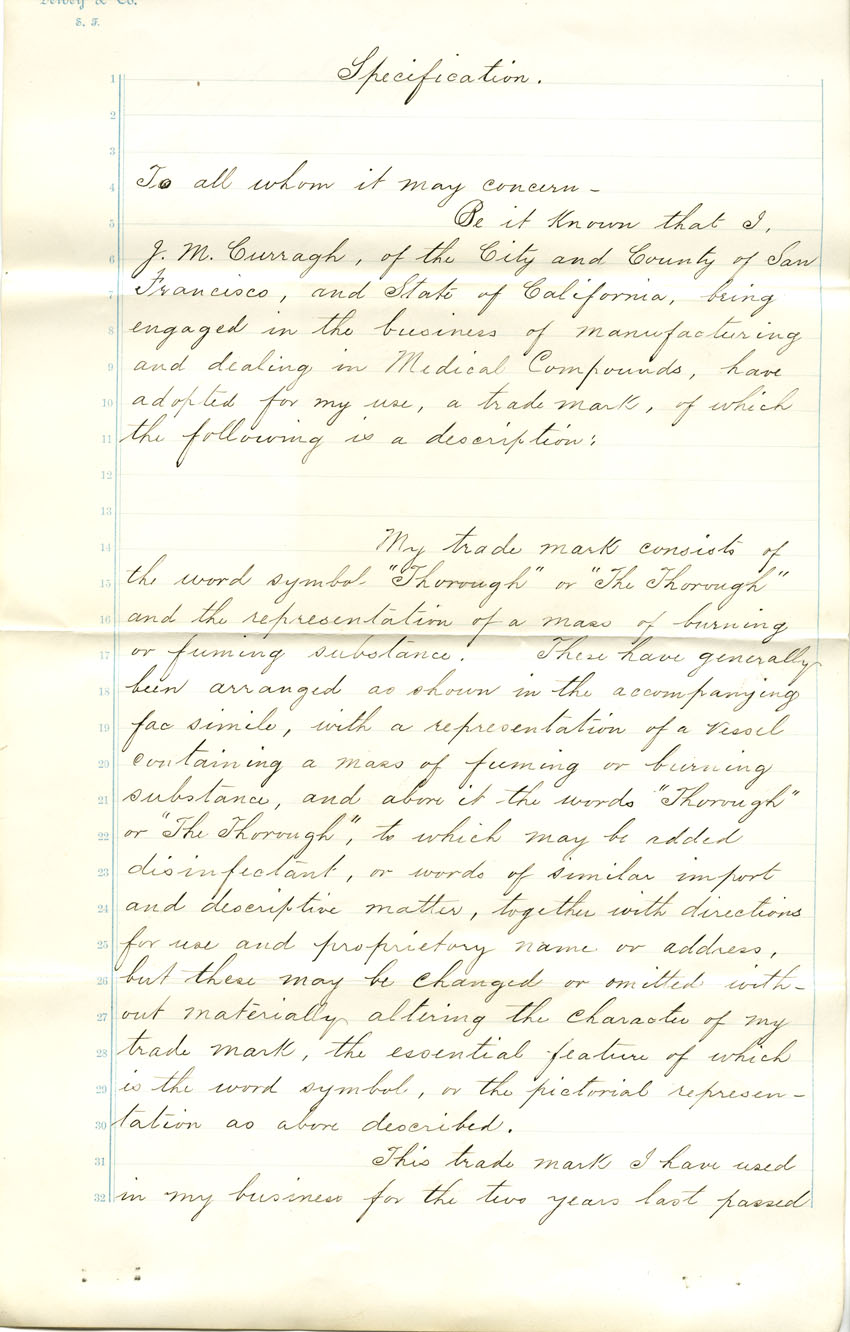 Dewey & Co.
S. F.
Specification.
1
2
3
4 To all whom it may concern -
5 Be it Known that I,
6 J. M. Curragh, of the City and County of San
7 Francisco, and State of California, being
8 engaged in the business of manufacturing
9 and dealing in Medical Compounds, have
10 adopted for my use, a trade mark, of which
11 the following is a description:
12
13
14 My trade mark consists of
15 the word symbol "Thorough" or "The Thorough"
16 and the representation of a mass of burning
17 or fuming substance. These have generally
18 been arranged as shown in the accompanying
19 fac simile, with a representation of a vessel
20 containing a mass of fuming or burning
21 substance, and above it the words "Thorough"
22 or "The Thorough", to which may be added
23 disinfectant, or words of similar import
24 and descriptive matter, together with directions
25 for use and proprietory name or address,
26 but these may be changed or omitted with-
27 out materially altering the character of my
28 trade mark, the essential feature of which
29 is the word symbol, or the pictorial represen-
30 tation as above described.
31 This trade mark I have used
32 in my business for the two years last passed